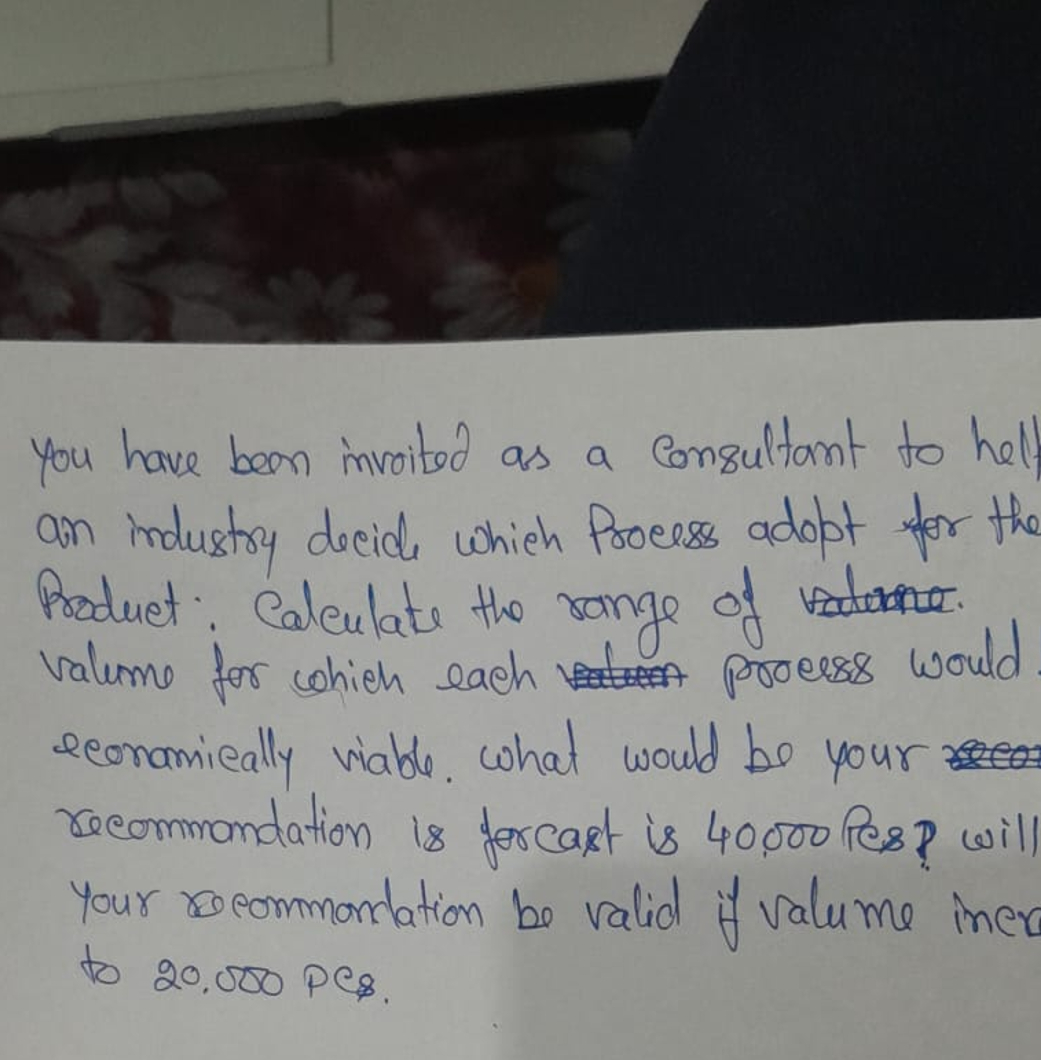 You have been invoited as a Consultant to hel
an industry decid which Process adopt for the
Product. Calculate the range of
valume for which each process would
economically viable. what would be your
recommondation is forcast is 40,000 Pcs? will
your recommondation be valid if valume incr
to 20,000 pcs.